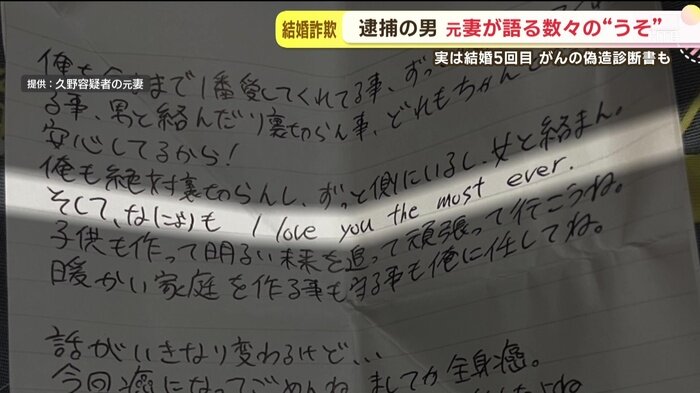 結婚詐欺
逮捕の男 元妻が語る数々の“うそ”
実は結婚5回目 がんの偽造診断書も
提供：久野容疑者の元妻
俺も今まで1番愛してくれてる事、ずっ
る事、男と絡んだり裏切らん事、どれもちゃんと
安心してるから！
俺も絶対裏切らんし、ずっと側にいるし、女と絡まん。
そして、なによりも I love you the most ever.
子供も作って明るい未来を追って頑張って行こうね。
暖かい家庭を作る事も守る事も俺に任してね。
話がいきなり変わるけど...
今回癌になってごめんね、ましてか全身癌。